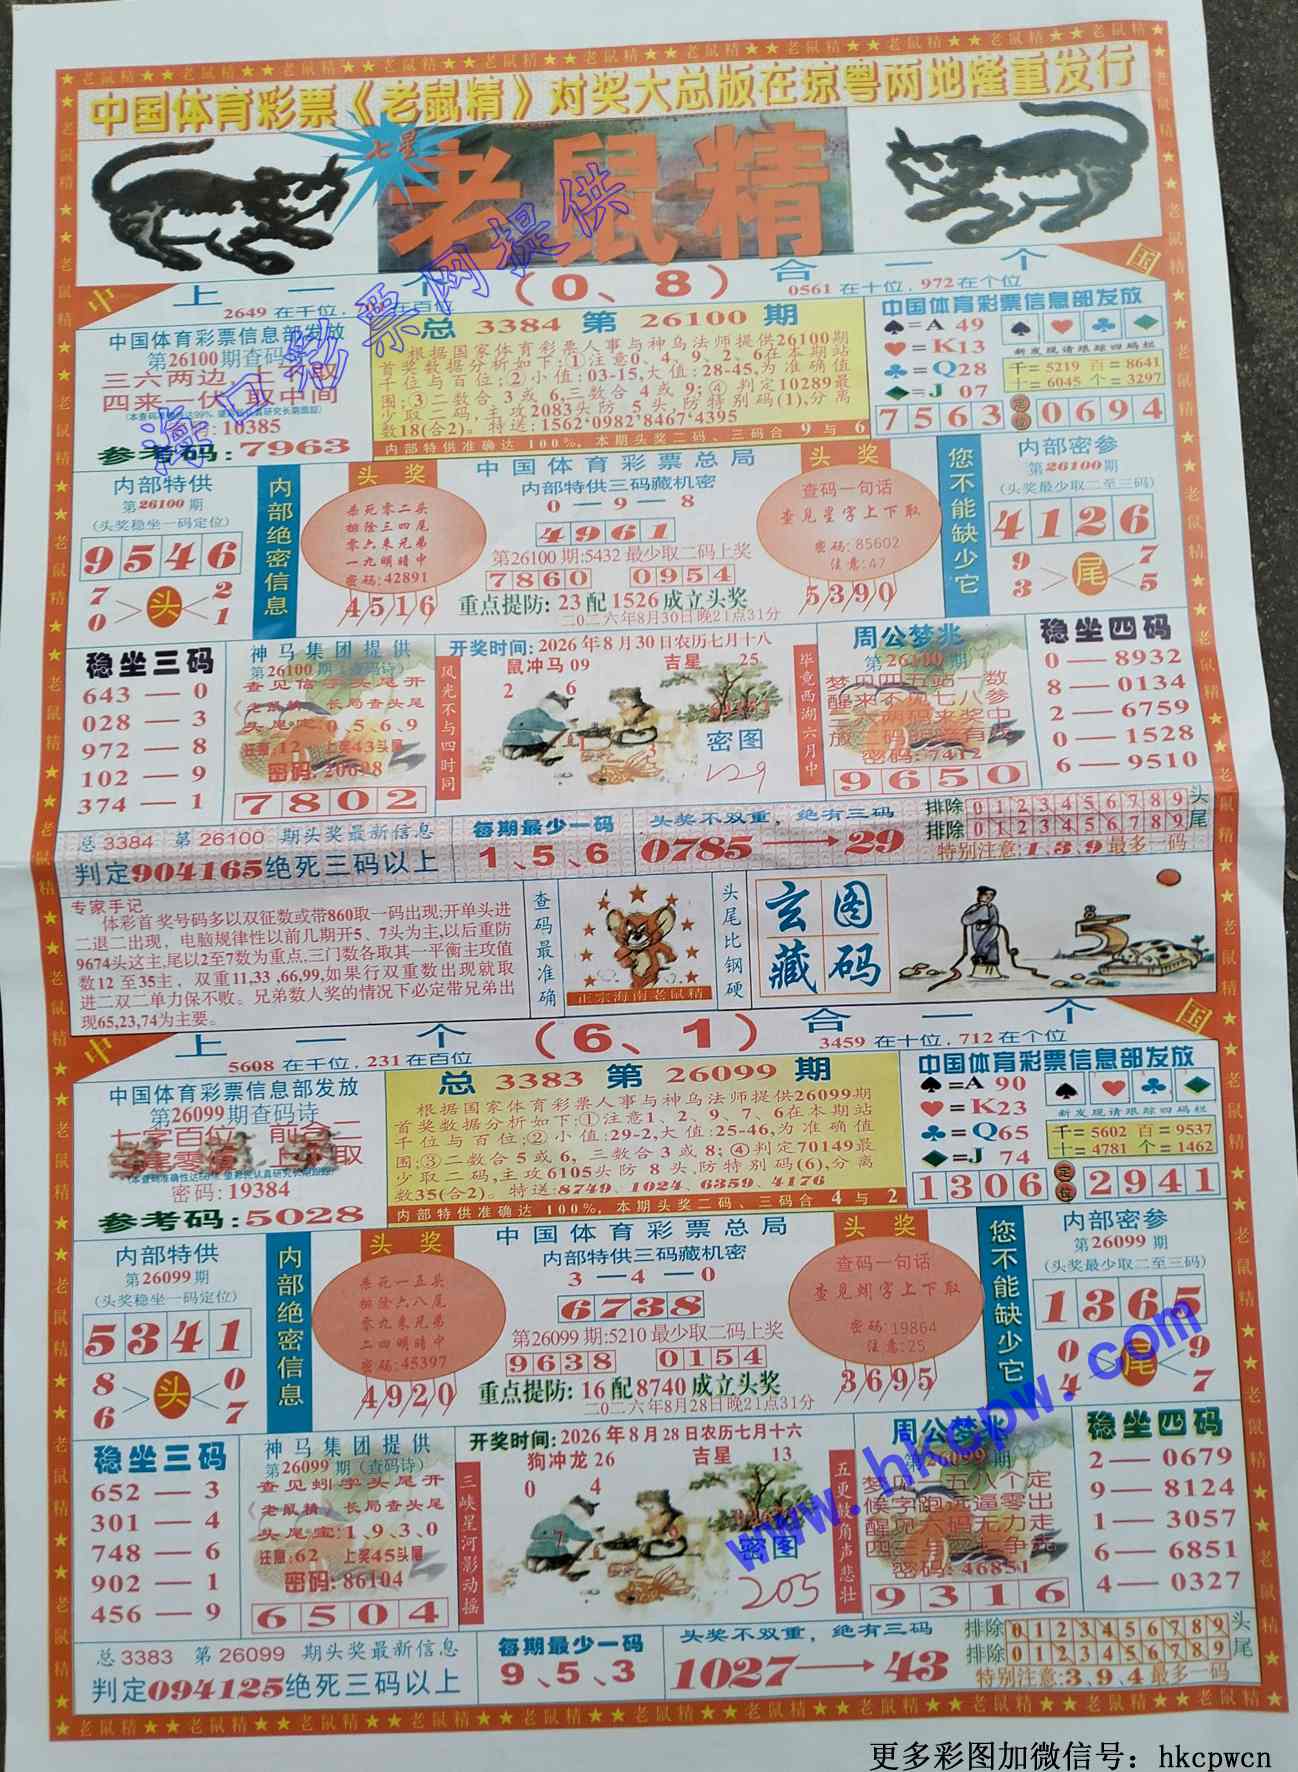 中国体育彩票《老鼠精》对奖大总版在琼粤两地隆重发行
七星
老鼠精
海口彩票网提供
中
国
上一个(0、8)合一个
2649在千位,
在百位
0561在十位,972在个位
中国体育彩票信息部发放
第26100期查码诗
三六两边
四来一伏 取中间
10385
参考码:7963
总 3384 第 26100 期
根据国家体育彩票人事与神乌法师提供26100期
首奖数据分析如下:①注意0、4、9、2、6在本期站
千位与百位;②小值:03-15,大值:28-45,为准确值
围;③二数合3或6,三数合4或9;④判定10289最
少取二码,主攻2083头防5头,防特别码(1),分离
数18(合2)。特送:1562·0982·8467·4395
内部特供准确达100%,本期头奖二码、三码合9与6
中国体育彩票信息部发放
♠=A 49
♥=K13
♣=Q28
♦=J 07
新发现请跟踪四码栏
千=5219 百=8641
十=6045 个=3297
7563 定位 0694
内部特供
第26100期
(头奖稳坐一码定位)
9546
7 0 > 头 < 2 1
内部绝密信息
头奖
杀死零二头
排除三四尾
零六来兄弟
一九明暗中
密码:42891
4516
中国体育彩票总局
内部特供三码藏机密
0—9—8
4961
第26100期:5432最少取二码上奖
7860 0954
重点提防:23配1526成立头奖
二〇二六年8月30日晚21点31分
头奖
查码一句话
查见星字上下取
密码:85602
注意:47
5390
您不能缺少它
内部密参
第26100期
(头奖最少取二至三码)
4126
9 3 > 尾 < 7 5
稳坐三码
643—0
028—3
972—8
102—9
374—1
神马集团提供
第26100期(查码诗)
查见信字头尾开
《老鼠精》长局查头尾
头尾定:0、5、6、9
注意:12 上奖43头尾
密码:20628
7802
风光不与四时同
开奖时间:2026年8月30日农历七月十八
鼠冲马09 吉星 25
2 6
密图
129
毕竟西湖六月中
周公梦兆
第26100期
梦见四五站一数
醒来不见七八参
三六两码来奖中
密码:7412
9650
稳坐四码
0—8932
8—0134
2—6759
0—1528
6—9510
总3384 第26100期头奖最新信息
判定904165绝死三码以上
每期最少一码
1、5、6
头奖不双重,绝有三码
0785→29
排除0123456789头
排除0123456789尾
特别注意:1、3、9最多一码
专家手记
体彩首奖号码多以双征数或带860取一码出现;开单头进
二退二出现,电脑规律性以前几期开5、7头为主,以后重防
9674头这主,尾以2至7数为重点,三门数各取其一平衡主攻值
数12至35主,双重11,33,66,99,如果行双重数出现就取
进二双二单力保不败。兄弟数人奖的情况下必定带兄弟出
现65,23,74为主要。
查码最准确
正宗海南老鼠精
头尾比钢硬
玄图藏码
中
国
上一个(6、1)合一个
5608在千位,231在百位
3459在十位,712在个位
中国体育彩票信息部发放
第26099期查码诗
密码:19384
参考码:5028
总 3383 第 26099 期
根据国家体育彩票人事与神乌法师提供26099期
首奖数据分析如下:①注意1、2、9、7、6在本期站
千位与百位;②小值:29-2,大值:25-46,为准确值
围;③二数合5或6,三数合3或8;④判定70149最
少取二码,主攻6105头防8头,防特别码(6),分离
数35(合2)。特送:8749、1024、6359、4176
内部特供准确达100%,本期头奖二码、三码合4与2
中国体育彩票信息部发放
♠=A 90
♥=K23
♣=Q65
♦=J 74
新发现请跟踪四码栏
千=5602 百=9537
十=4781 个=1462
1306 定位 2941
内部特供
第26099期
(头奖稳坐一码定位)
5341
8 6 > 头 < 0 7
内部绝密信息
头奖
杀死一五头
排除六八尾
零九来兄弟
二四明暗中
密码:45397
4920
中国体育彩票总局
内部特供三码藏机密
3—4—0
6738
第26099期:5210最少取二码上奖
9638 0154
重点提防:16配8740成立头奖
二〇二六年8月28日晚21点31分
头奖
查码一句话
查见蚓字上下取
密码:19864
注意:25
3695
您不能缺少它
内部密参
第26099期
(头奖最少取二至三码)
1365
0 4 > 尾 < 9 7
稳坐三码
652—3
301—4
748—6
902—1
456—9
神马集团提供
第26099期(查码诗)
查见蚓字头尾开
《老鼠精》长局查头尾
头尾定:1、9、3、0
注意:62 上奖45头尾
密码:86104
6504
三峡星河影动摇
开奖时间:2026年8月28日农历七月十六
狗冲龙26 吉星 13
0 4
密图
205
五更鼓角声悲壮
周公梦兆
第26099期
梦见一五八个定
候字跑远逼零出
醒见六码无力走
密码:46851
9316
稳坐四码
2—0679
9—8124
1—3057
6—6851
4—0327
总3383 第26099期头奖最新信息
判定094125绝死三码以上
每期最少一码
9、5、3
头奖不双重,绝有三码
1027→43
排除0123456789头
排除0123456789尾
特别注意:3、9、4最多一码
www.hkcpw.com
更多彩图加微信号:hkcpwcn